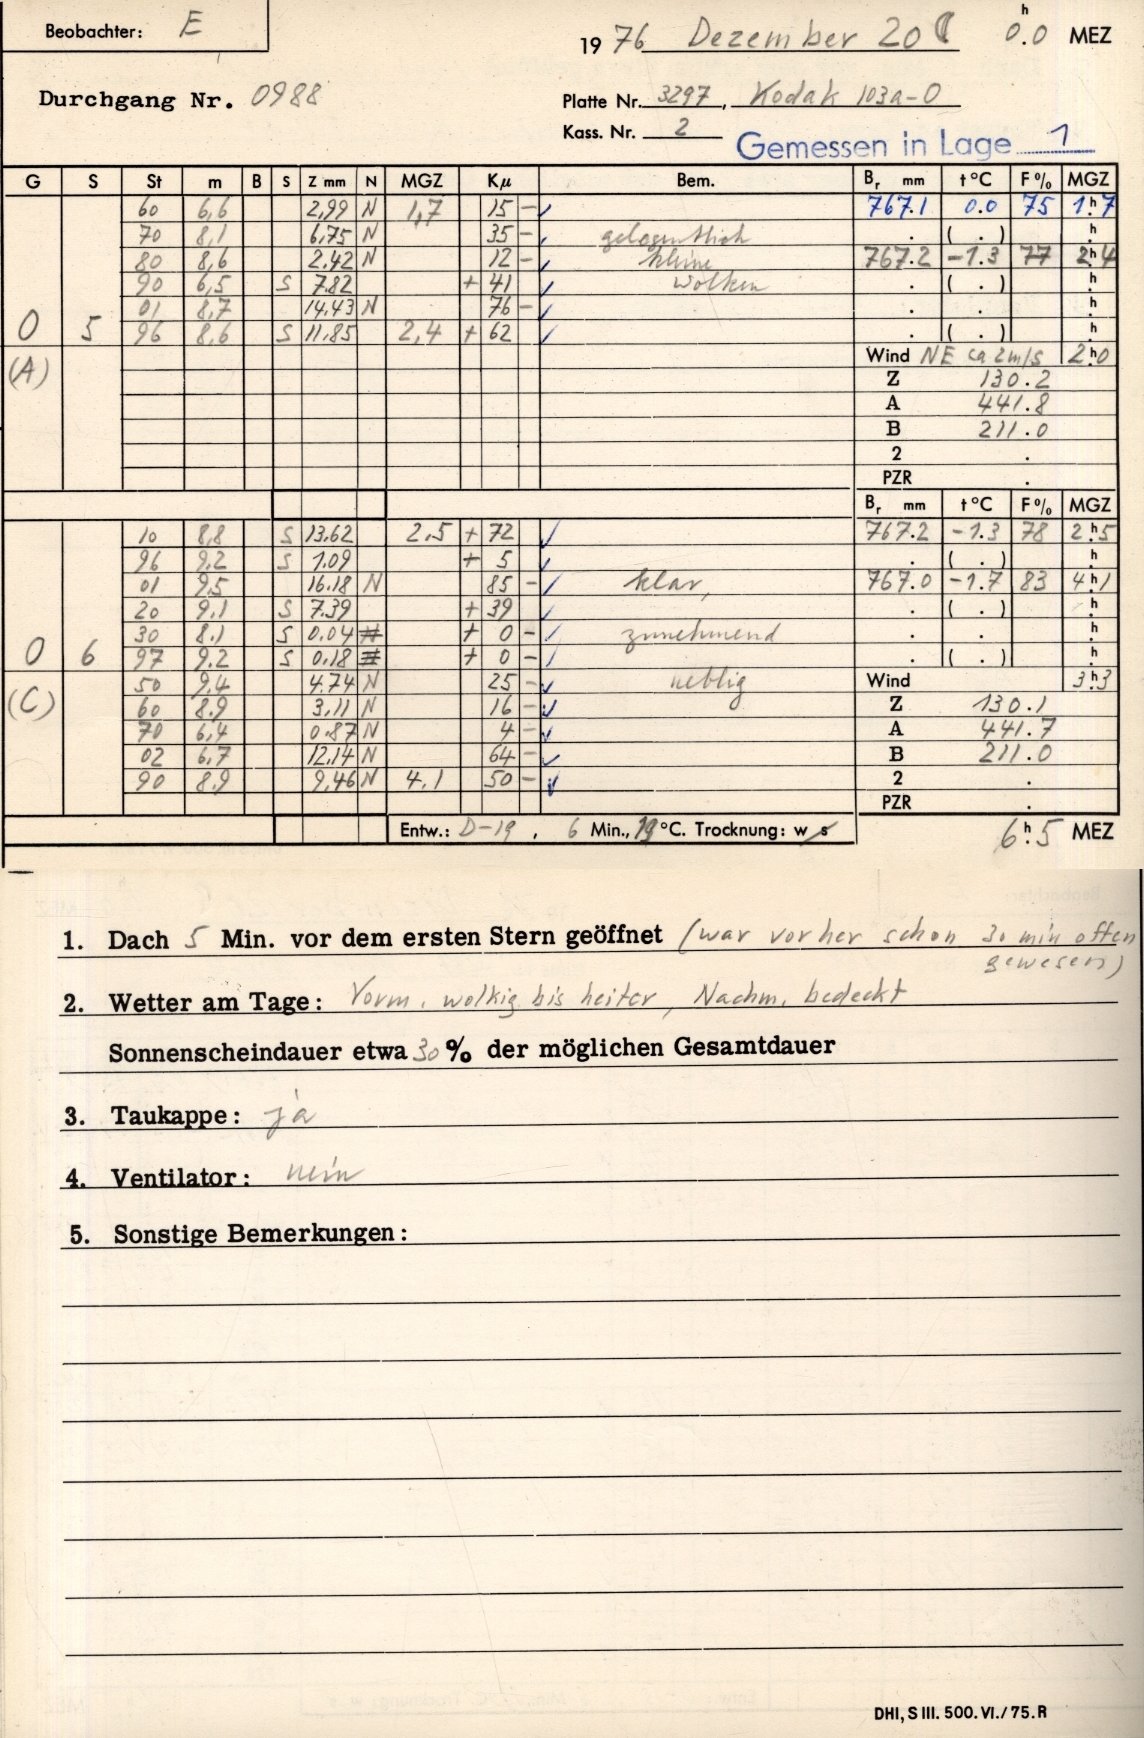 Beobachter: E
1976 Dezember 20 0h.0 MEZ
Durchgang Nr. 0988
Platte Nr. 3297, Kodak 103a-O
Kass. Nr. 2
Gemessen in Lage 1
G S St m B S Z mm N MGZ Kμ Bem. Br mm t°C F% MGZ
60 6,6 2,99 N 1,7 15 - 767.1 0.0 75 1h.7
70 8,1 6,75 N 35 - gelegentlich . ( . ) h.
80 8,6 2,42 N 12 - kleine 767.2 -1.3 77 2h.4
90 6,5 S 7.82 + 41 Wolken . ( . ) h.
01 8,7 14.43 N 76 - . . h.
0 5 96 8,6 S 11.85 2,4 + 62 . ( . ) h.
(A) Wind NE ca 2m/s 2h.0
Z 130.2
A 441.8
B 211.0
2 .
PZR .
Br mm t°C F% MGZ
10 8,8 S 13.62 2,5 + 72 767.2 -1.3 78 2h.5
96 9.2 S 1.09 + 5 . ( . ) h.
01 9.5 16.18 N 85 - klar, 767.0 -1.7 83 4h.1
20 9.1 S 7.39 + 39 . ( . ) h.
30 8.1 S 0.04 N + 0 - zunehmend . . h.
0 6 97 9.2 S 0.18 N + 0 - . ( . ) h.
(C) 50 9.4 4.74 N 25 - neblig Wind 3h.3
60 8.9 3.11 N 16 - Z 130.1
70 6,4 0.87 N 4 - A 441.7
02 6,7 12.14 N 64 - B 211.0
90 8.9 9,46 N 4.1 50 - 2 .
PZR .
Entw.: D-19, 6 Min., 19 °C. Trocknung: w s 6h.5 MEZ
1. Dach 5 Min. vor dem ersten Stern geöffnet (war vorher schon 30 min offen
gewesen)
2. Wetter am Tage: Vorm. wolkig bis heiter, Nachm. bedeckt
Sonnenscheindauer etwa 30 % der möglichen Gesamtdauer
3. Taukappe: ja
4. Ventilator: nein
5. Sonstige Bemerkungen:
DHI, S III. 500. VI./75. R